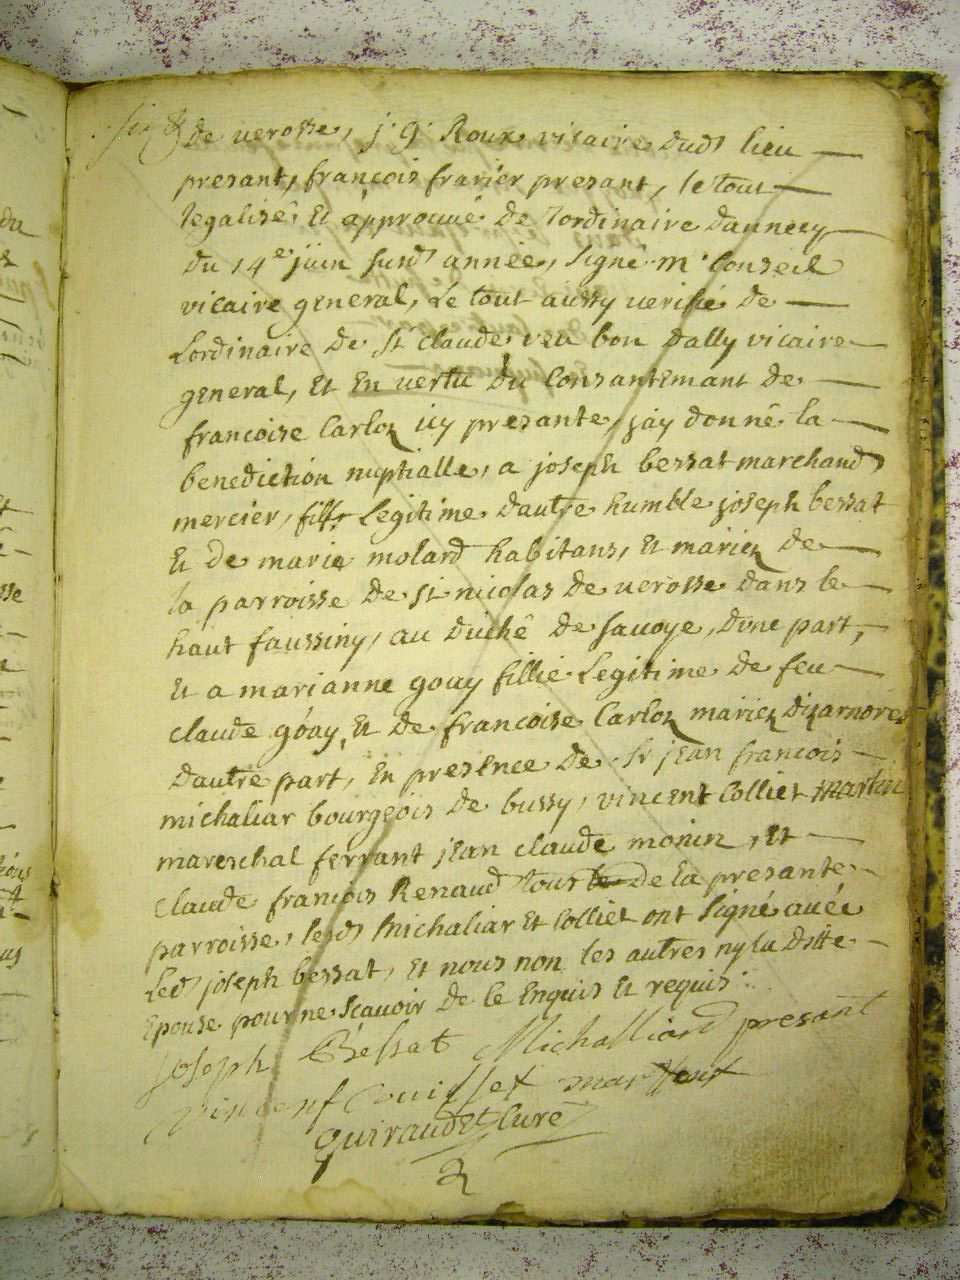 de verosse, j. g. Roux vicaire dud lieu
presant, françois frarier presant, le tout
legalisé et approuué de lordinaire dannecy
du 14e juin susd année, signé m. Conseil
vicaire general, Le tout aussy verifié de
Lordinaire de St claude, veu bon dally vicaire
general, Et En vertu du Consantemant de
francoise Carloz icy presante, jay donné la
benediction nuptialle, a joseph bessat marchand
mercier, fills Legitime dautre humble joseph bessat
Et de marie molard habitans, Et mariez de
la parroisse de st nicolas de verosse dans le
haut faussiny, au duché de savoye, dune part,
Et a marianne gouy fillie Legitime de feu
claude goay, Et de francoise Carloz mariez dizarnores
dautre part, En presence de Sr jean francois
michaliar bourgeois de bussy, vincent Colliet martin
mareschal ferrant jean claude monin, Et
Claude françois Renaud tous de la presante
parroisse, lesd michaliar Et Colliet ont signé avec
Led joseph bessat, Et nous non les autres ny laditte
Epouse pour ne scauoir de le Enquis Et requis
joseph Bessat Michalliard presant
vincent
guiraudet Curé